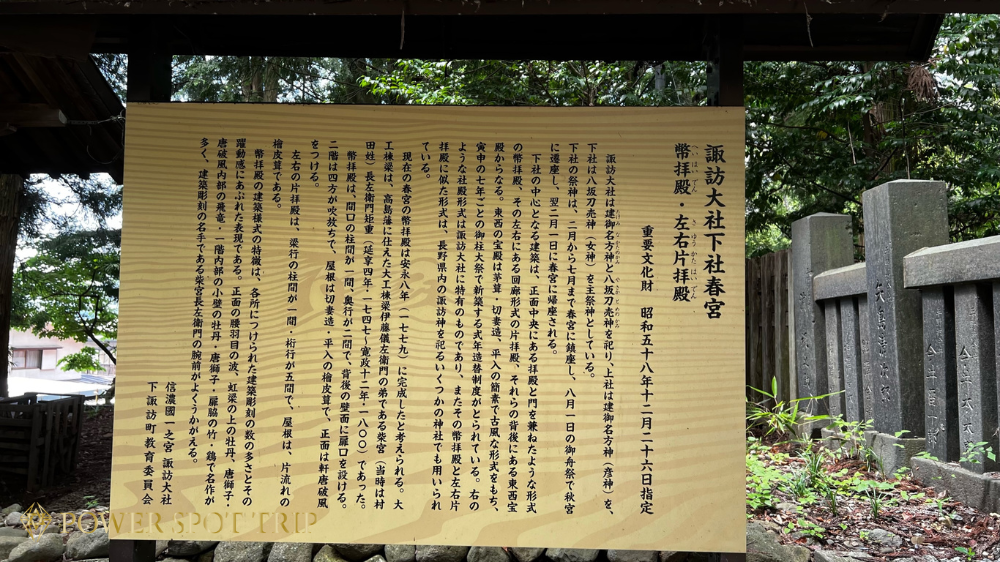 諏訪大社下社春宮
幣拝殿・左右片拝殿
重要文化財　昭和五十八年十二月二十六日指定
諏訪大社は建御名方神と八坂刀売神を祀り、上社は建御名方神（彦神）を、
下社は八坂刀売神（女神）を主祭神としている。
下社の祭神は、二月から七月まで春宮に鎮座し、八月一日の御舟祭で秋宮
に遷座し、翌二月一日に春宮に帰座される。
下社の中心となる建築は、正面中央にある拝殿と門を兼ねたような形式
の幣拝殿、その左右にある回廊形式の片拝殿、それらの背後にある東西宝
殿からなる。東西の宝殿は茅葺・切妻造、平入の簡素で古風な形式をもち、
寅申の七年ごとの御柱大祭で新築する式年造替制度がとられている。右の
ような社殿形式は諏訪大社に特有のものであり、またその幣拝殿と左右片
拝殿に似た形式は、長野県内の諏訪神を祀るいくつかの神社でも用いられ
ている。
現在の春宮の幣拝殿は安永八年（一七七九）に完成したと考えられる。大
工棟梁は、高島藩に仕えた大工棟梁伊藤儀左衛門の弟である柴宮（当時は村
田姓）長左衛門矩重（延享四年・一七四七～寛政十二年・一八〇〇）であった。
幣拝殿は、間口の柱間が一間、奥行が二間で、背後の壁面に扉口を設ける。
二階は四方が吹放ちで、屋根は切妻造・平入の檜皮葺で、正面は軒唐破風
をつける。
左右の片拝殿は、梁行の柱間が一間・桁行が五間で、屋根は、片流れの
檜皮葺である。
幣拝殿の建築様式の特徴は、各所につけられた建築彫刻の数の多さとその
躍動感にあふれた表現である。正面の腰羽目の波、虹梁の上の牡丹、唐獅子・
唐破風内部の飛竜・一階内部の小壁の牡丹・唐獅子・扉脇の竹・鶏で名作が
多く、建築彫刻の名手である柴宮長左衛門の腕前がよくうかがえる。
信濃國一之宮 諏訪大社
下諏訪町教育委員会
POWER SPOT TRIP